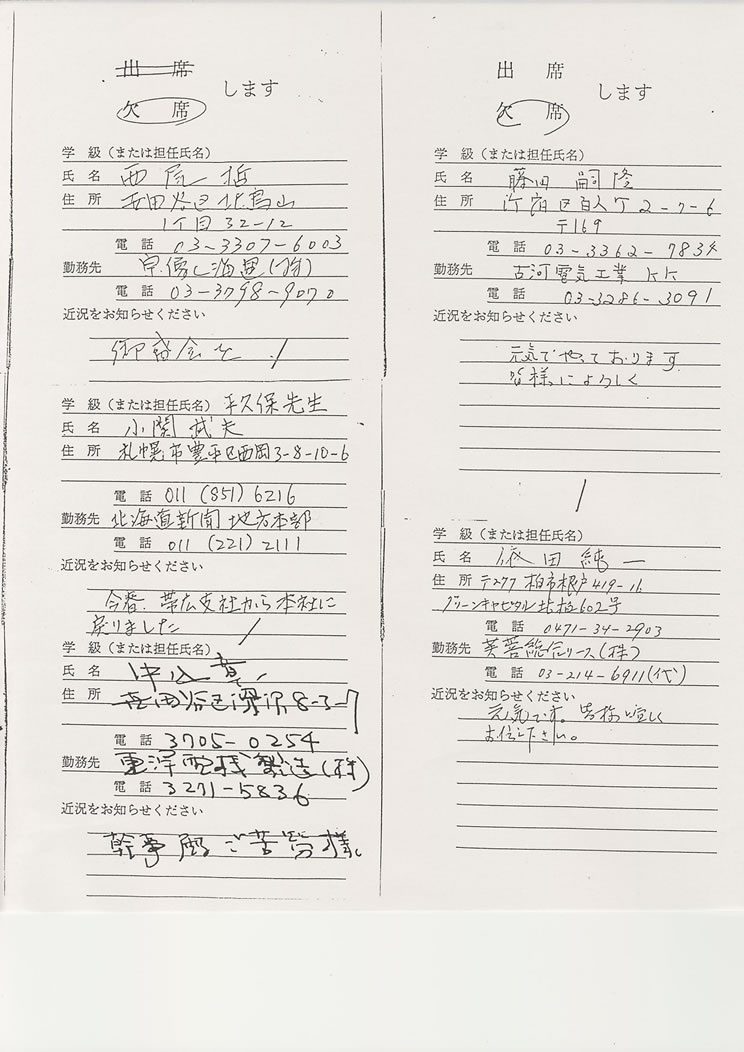 出席
欠席
します
学級(または担任氏名)
氏名 西尾 哲
住所 世田谷区北烏山
1丁目32-12
電話 03-3307-6003
勤務先 海運(株)
電話 03-3798-9070
近況をお知らせください
御盛会を
学級(または担任氏名) 平久保先生
氏名 小関 夫
住所 札幌市豊平区西岡3-8-10-6
電話 011 (851) 6216
勤務先 北海道新聞 地方本部
電話 011 (221) 2111
近況をお知らせください
今春、帯広支社から本社に
戻りました
学級(または担任氏名)
氏名 中込 章
住所 世田谷区深沢8-3-7
電話 3705-0254
勤務先 東洋電機製造(株)
電話 3271-5836
近況をお知らせください
幹事 ご苦労様
出席
欠席
します
学級(または担任氏名)
氏名 藤田 嗣隆
住所 新宿区百人丁2-7-6
〒169
電話 03-3362-7834
勤務先 古河電気工業KK
電話 03-3286-3091
近況をお知らせください
元気でやっております
皆様によろしく
学級(または担任氏名)
氏名 依田 純一
住所 〒277 柏市根戸419-16
グリーンキャピタル 602号
電話 0471-34-2903
勤務先 芙蓉総合リース(株)
電話 03-214-6911(代)
近況をお知らせください
元気です。皆様に宜しく
お伝え下さい。